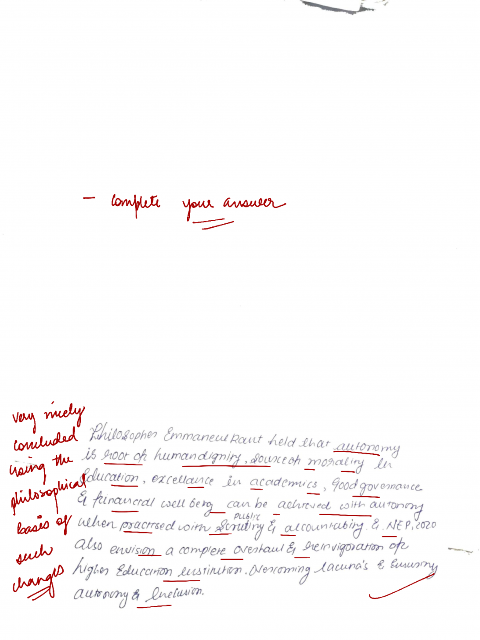 - Complete your answer
very nicely
concluded
using the
philosophical
basis of
such
changes
Philosopher Emmaneul Kant held that autonomy
is root of human dignity, source of morality in
Education, excellance in academics, Good governance
& financial well being can be achieved with autonomy
when practised with public scrutiny & accountability & NEP, 2020
also envision a complete overhaul & reinvigoration of
higher Education institution. Overcoming lacuna's & Ensuring
autonomy & Inclusion.